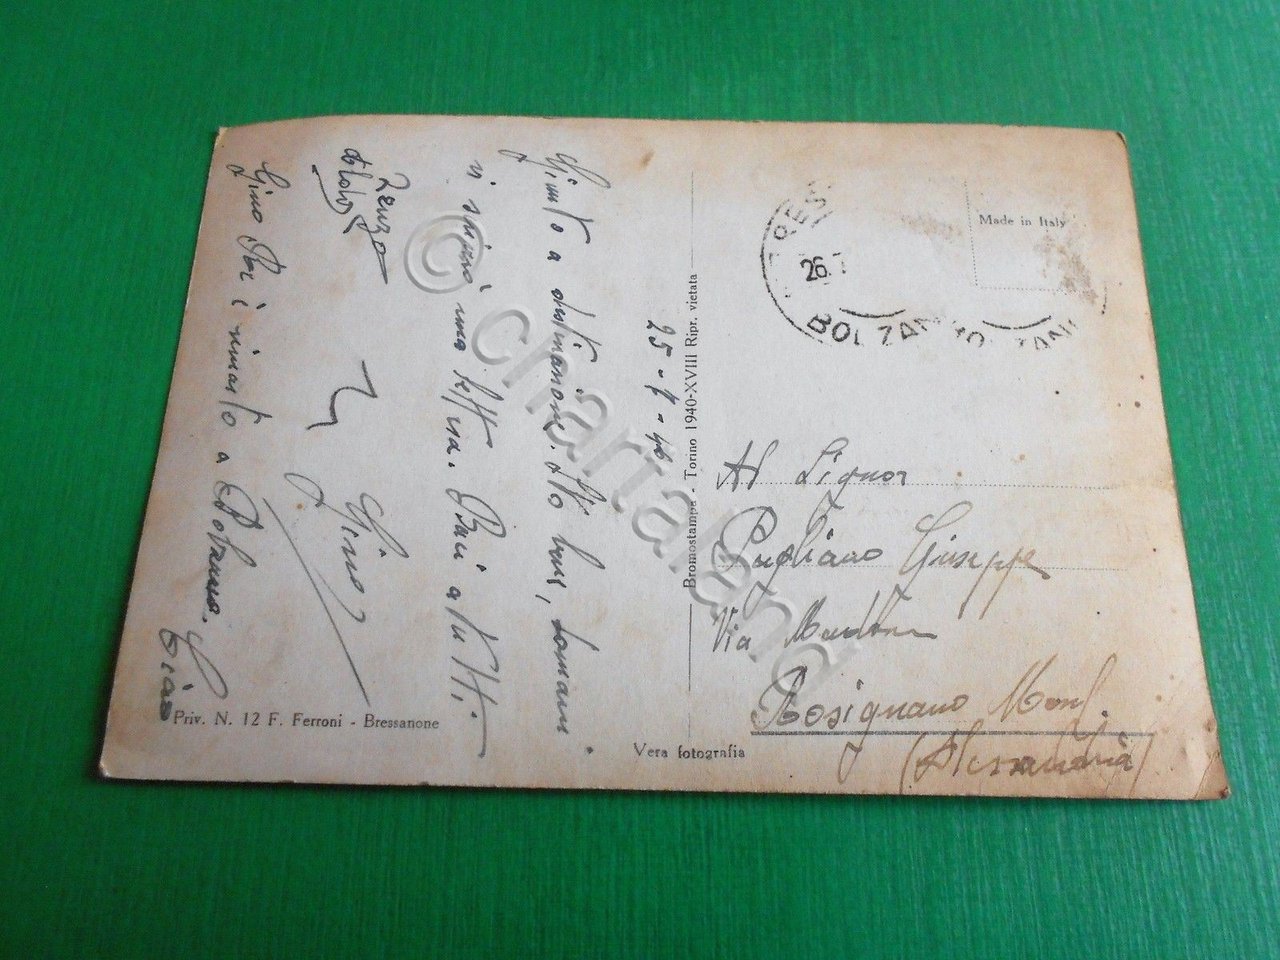 25-7-46
Giunto a destinazione. Sto bene, domani
vi scriverò una lettera. Baci a tutti.
Gino
Renzo
Gino Poi è rimasto a Bolzano.
Ciao
Priv. N. 12 F. Ferroni - Bressanone
Vera fotografia
Bromostampa - Torino 1940-XVIII Ripr. vietata
Made in Italy
26.7
BOLZANO
BOLZANO
Al Signor
Pugliano Giuseppe
Via
Rosignano Monf.
(Alessandria)
© chartaland